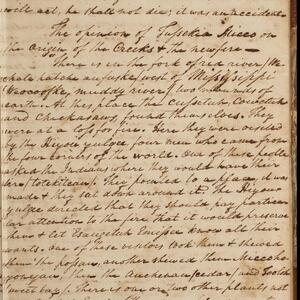 will act, he shall not die; it was an accident
The opinion of Tussekia Micco on
the origin of the Creeks & the new fire—
There is in the fork of red river, (We
cha te hatche au fus ke) west of Mississippi
(Weocoofke, muddy river) two mounds of
earth. At this place the Cussetuh, Cowetuh
and Chickasaws found themselves. They
were at a loss for fire. Here they were visited
by the Hiyou yul gee, four men who came from
the four corners of the world. One of these people
asked the Indians where they would have their
fire (tote kit cau). They pointed to a place; it was
made & they sat down around it. The Hiyou
yulgee directed that they should pay particu
lar attention to the fire, that it would preserve
them & let Esaugetuh Emissee know all their
wants. One of these visitors took them & shewed
them the possau, another shewed them Mic co ho
yon e jau, then the Auchenau (cedar) and Tootch
(sweet bay). There is one or two other plants not